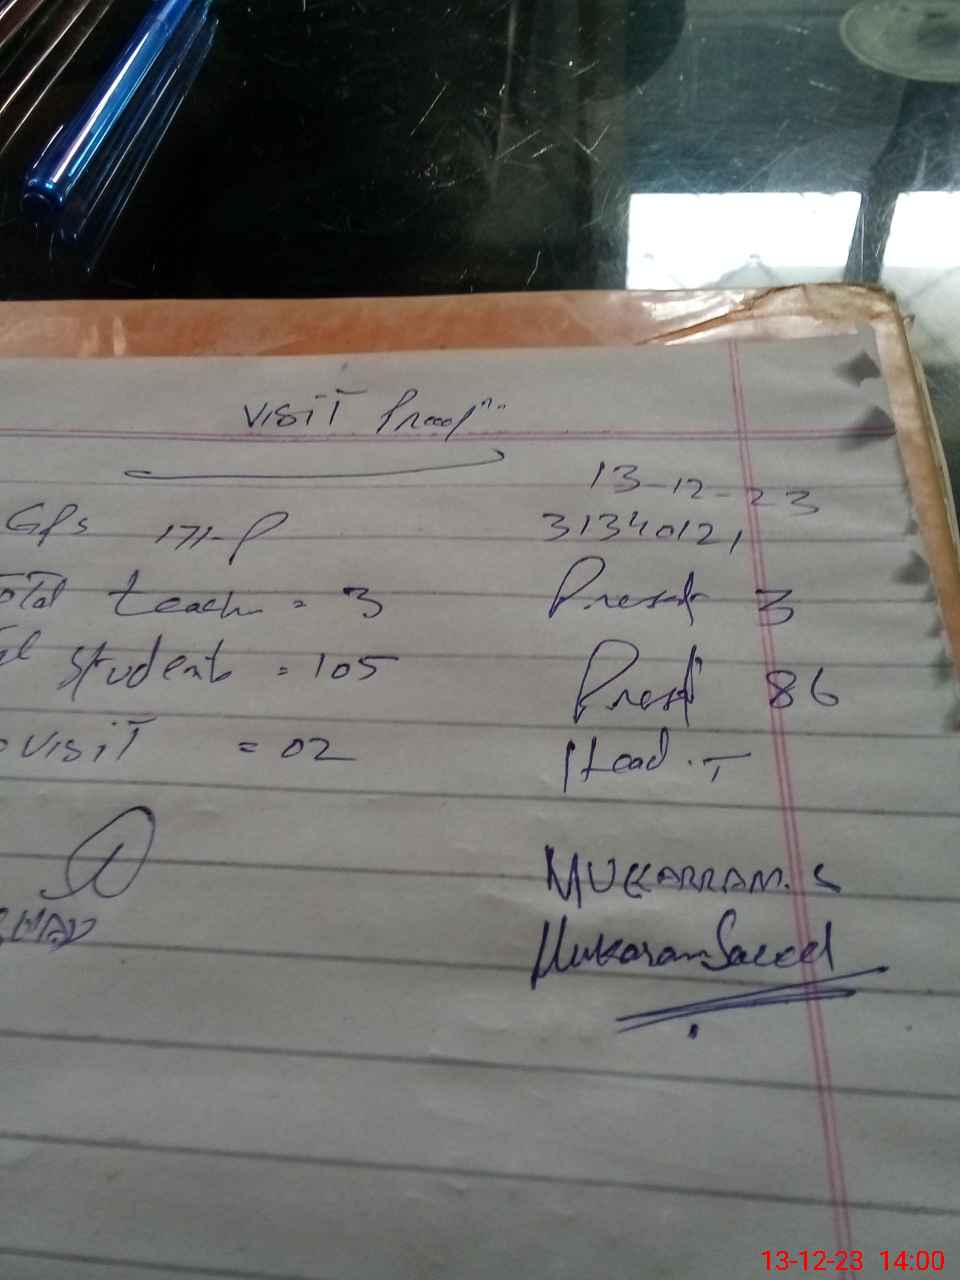 VISIT Proof
13-12-23
GPS 171-P 31340121
Total teach = 3 Present 3
students = 105 Present 86
VISIT = 02 Head.T
MUKARRAM.S
Mukaram Saeed
13-12-23 14:00